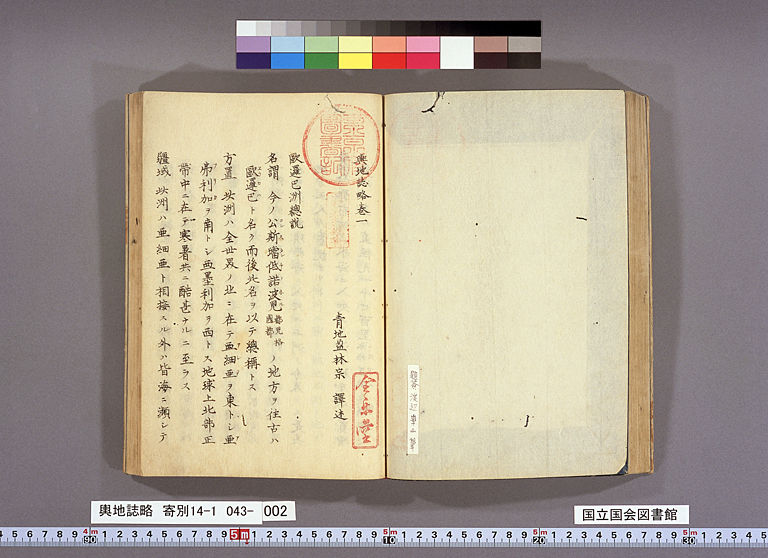 輿地誌略巻一
青地盈林宗 譯述
歐邏巴洲總説
名謂 今ノ公斯璫低諾波兒ノ地方ヲ往古ハ
歐邏巴ト名ク而後此名ヲ以テ總稱トス
方置 此洲ハ全世界ノ北ニ在テ亜細亜ヲ東トシ亜
弗利加ヲ南トシ亜墨利加ヲ西トス地球上北部正
帯中ニ在テ寒暑共ニ酷甚ナルニ至ラス
疆域 此洲ハ亜細亜ト相接スル外ハ皆海ニ瀕シテ
輿地誌略 寄別14-1 043- 002
国立国会図書館